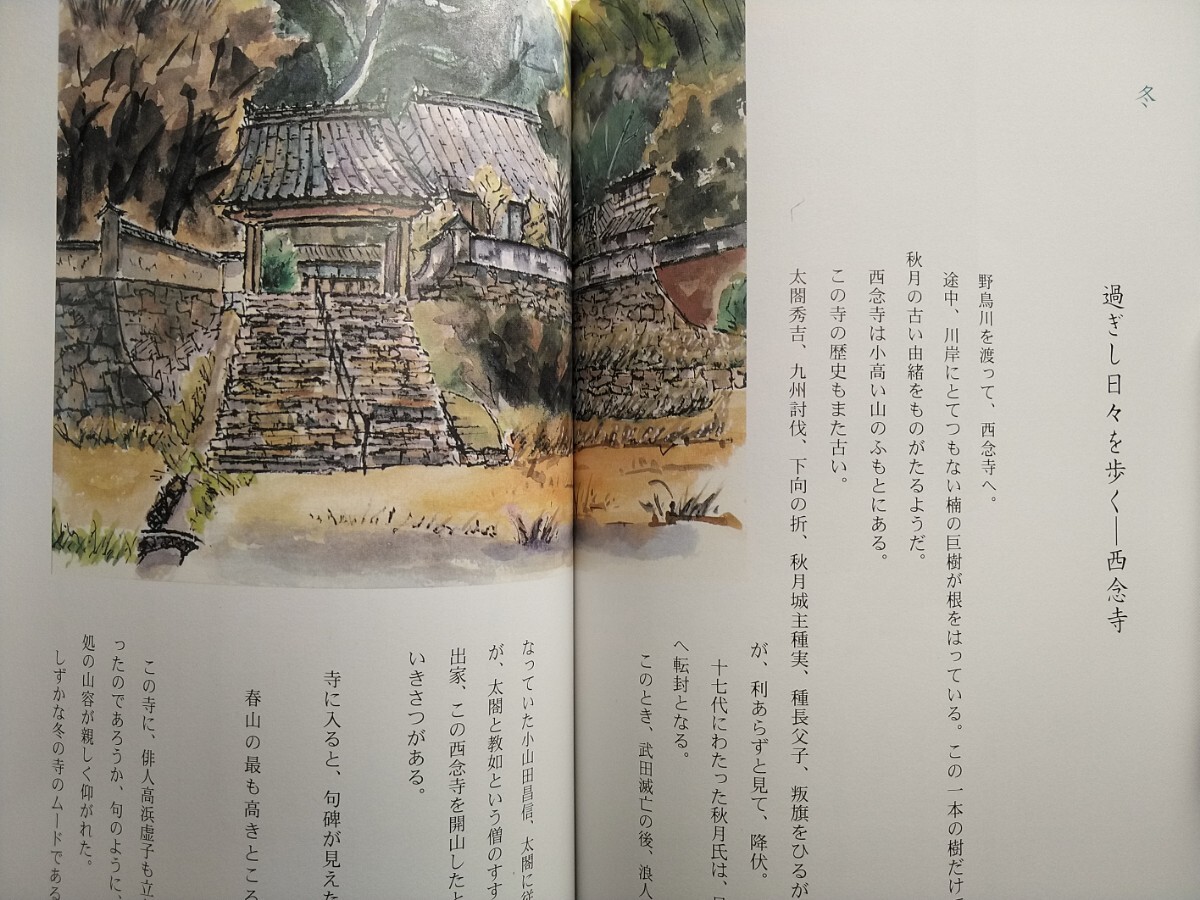 冬
過ぎし日々を歩く―西念寺
野鳥川を渡って、西念寺へ。
途中、川岸にとてつもない楠の巨樹が根をはっている。この一本の樹だけ
秋月の古い由緒をものがたるようだ。
西念寺は小高い山のふもとにある。
この寺の歴史もまた古い。
太閤秀吉、九州討伐、下向の折、秋月城主種実、種長父子、叛旗をひるが
が、利あらずと見て、降伏。
十七代にわたった秋月氏は、
へ転封となる。
このとき、武田滅亡の後、浪人
なっていた小山田昌信、太閤に従
が、太閤と教如という僧のすす
出家、この西念寺を開山したと
いきさつがある。
寺に入ると、句碑が見えた
春山の最も高きところ
この寺に、俳人高浜虚子も立
ったのであろうか、句のように、
処の山容が親しく仰がれた。
しずかな冬の寺のムードである